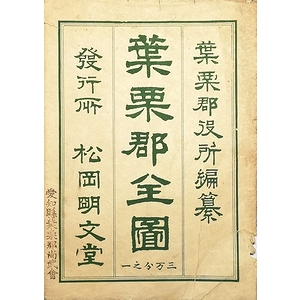 葉栗郡役所編纂
葉栗郡全圖
三万分之一
發行所 松岡明文堂